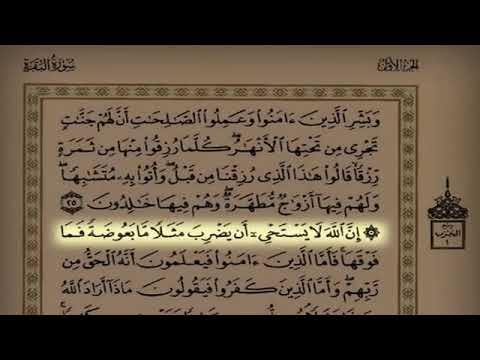 سُورَةُ البَقَرَةِ
الجُزْءُ الأَوَّلُ
وَبَشِّرِ ٱلَّذِينَ ءَامَنُوا۟ وَعَمِلُوا۟ ٱلصَّـٰلِحَـٰتِ أَنَّ لَهُمْ جَنَّـٰتٍ
تَجْرِى مِن تَحْتِهَا ٱلْأَنْهَـٰرُ ۖ كُلَّمَا رُزِقُوا۟ مِنْهَا مِن ثَمَرَةٍ
رِّزْقًا ۙ قَالُوا۟ هَـٰذَا ٱلَّذِى رُزِقْنَا مِن قَبْلُ ۖ وَأُتُوا۟ بِهِۦ مُتَشَـٰبِهًا ۖ
وَلَهُمْ فِيهَآ أَزْوَٰجٌ مُّطَهَّرَةٌ ۖ وَهُمْ فِيهَا خَـٰلِدُونَ ٢٥
۞ إِنَّ ٱللَّهَ لَا يَسْتَحْىِۦٓ أَن يَضْرِبَ مَثَلًا مَّا بَعُوضَةً فَمَا
فَوْقَهَا ۚ فَأَمَّا ٱلَّذِينَ ءَامَنُوا۟ فَيَعْلَمُونَ أَنَّهُ ٱلْحَقُّ مِن
رَّبِّهِمْ ۖ وَأَمَّا ٱلَّذِينَ كَفَرُوا۟ فَيَقُولُونَ مَاذَآ أَرَادَ ٱللَّهُ
الحِزْبُ
١